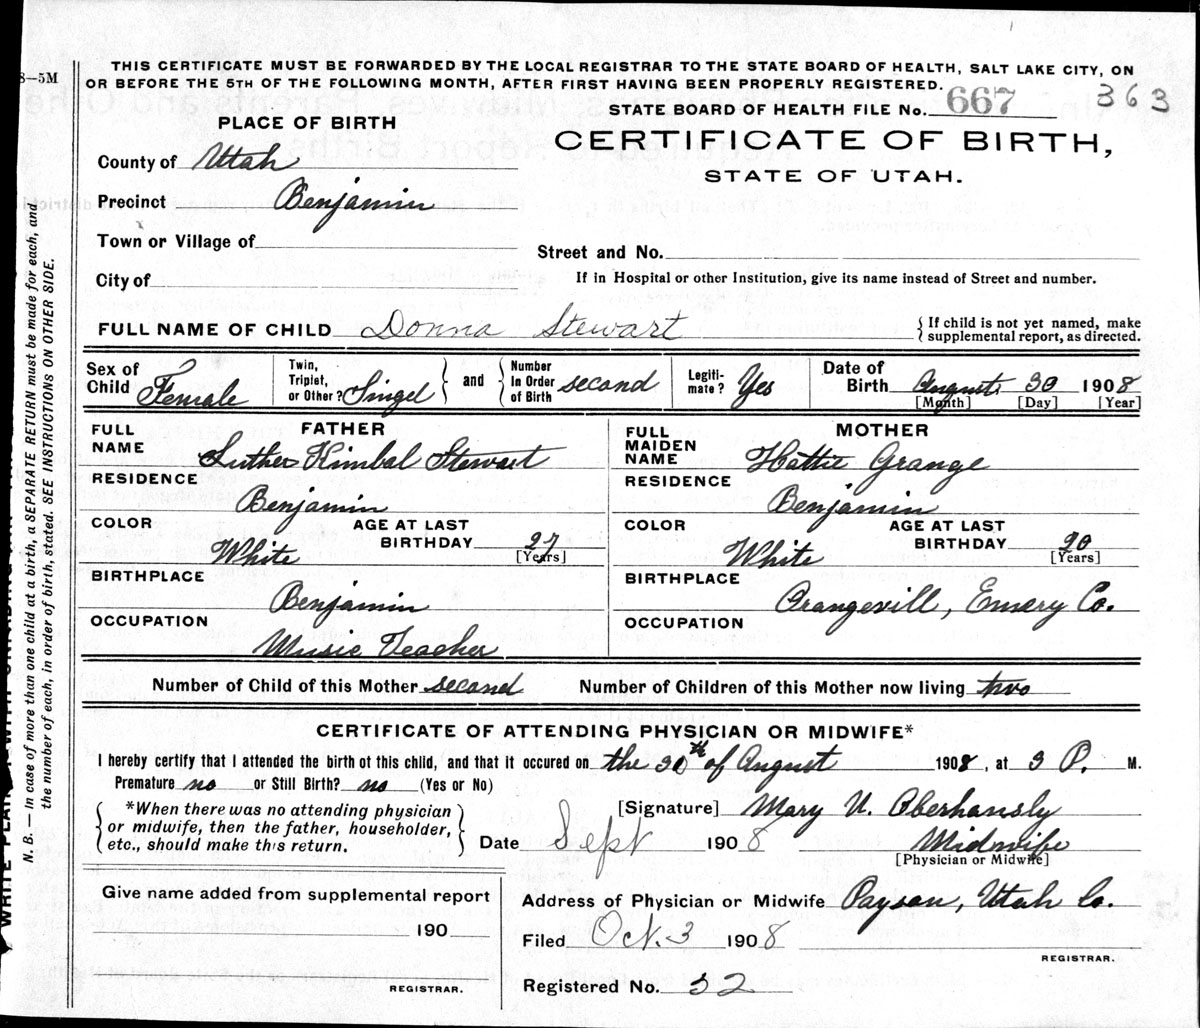 8—5M
THIS CERTIFICATE MUST BE FORWARDED BY THE LOCAL REGISTRAR TO THE STATE BOARD OF HEALTH, SALT LAKE CITY, ON
OR BEFORE THE 5TH OF THE FOLLOWING MONTH, AFTER FIRST HAVING BEEN PROPERLY REGISTERED.
363
STATE BOARD OF HEALTH FILE No. 667
PLACE OF BIRTH
CERTIFICATE OF BIRTH,
STATE OF UTAH.
County of Utah
Precinct Benjamin
Town or Village of
Street and No.
City of
If in Hospital or other Institution, give its name instead of Street and number.
FULL NAME OF CHILD Donna Stewart
{If child is not yet named, make
supplemental report, as directed.
Sex of Child Female
Twin, Triplet, or Other? Singel } and { Number In Order of Birth second
Legiti-mate? Yes
Date of Birth August 30 1908
[Month] [Day] [Year]
FATHER
FULL NAME Luther Kimbal Stewart
RESIDENCE Benjamin
COLOR White
AGE AT LAST BIRTHDAY 27 [Years]
BIRTHPLACE Benjamin
OCCUPATION Music Teacher
MOTHER
FULL MAIDEN NAME Hattie Grange
RESIDENCE Benjamin
COLOR White
AGE AT LAST BIRTHDAY 20 [Years]
BIRTHPLACE Orangevill, Emery Co.
OCCUPATION
Number of Child of this Mother second Number of Children of this Mother now living two
CERTIFICATE OF ATTENDING PHYSICIAN OR MIDWIFE*
I hereby certify that I attended the birth of this child, and that it occured on the 30th of August 1908, at 3 P. M.
Premature no or Still Birth? no (Yes or No)
{*When there was no attending physician
or midwife, then the father, householder,
etc., should make this return.}
[Signature] Mary U. Oberhansly
Date Sept 1908
Midwife
[Physician or Midwife]
Give name added from supplemental report
190
REGISTRAR.
Address of Physician or Midwife Payson, Utah Co.
Filed Oct. 3 1908
REGISTRAR.
Registered No. 32
N. B. — In case of more than one child at a birth, a SEPARATE RETURN must be made for each, and
the number of each, in order of birth, stated. SEE INSTRUCTIONS ON OTHER SIDE.